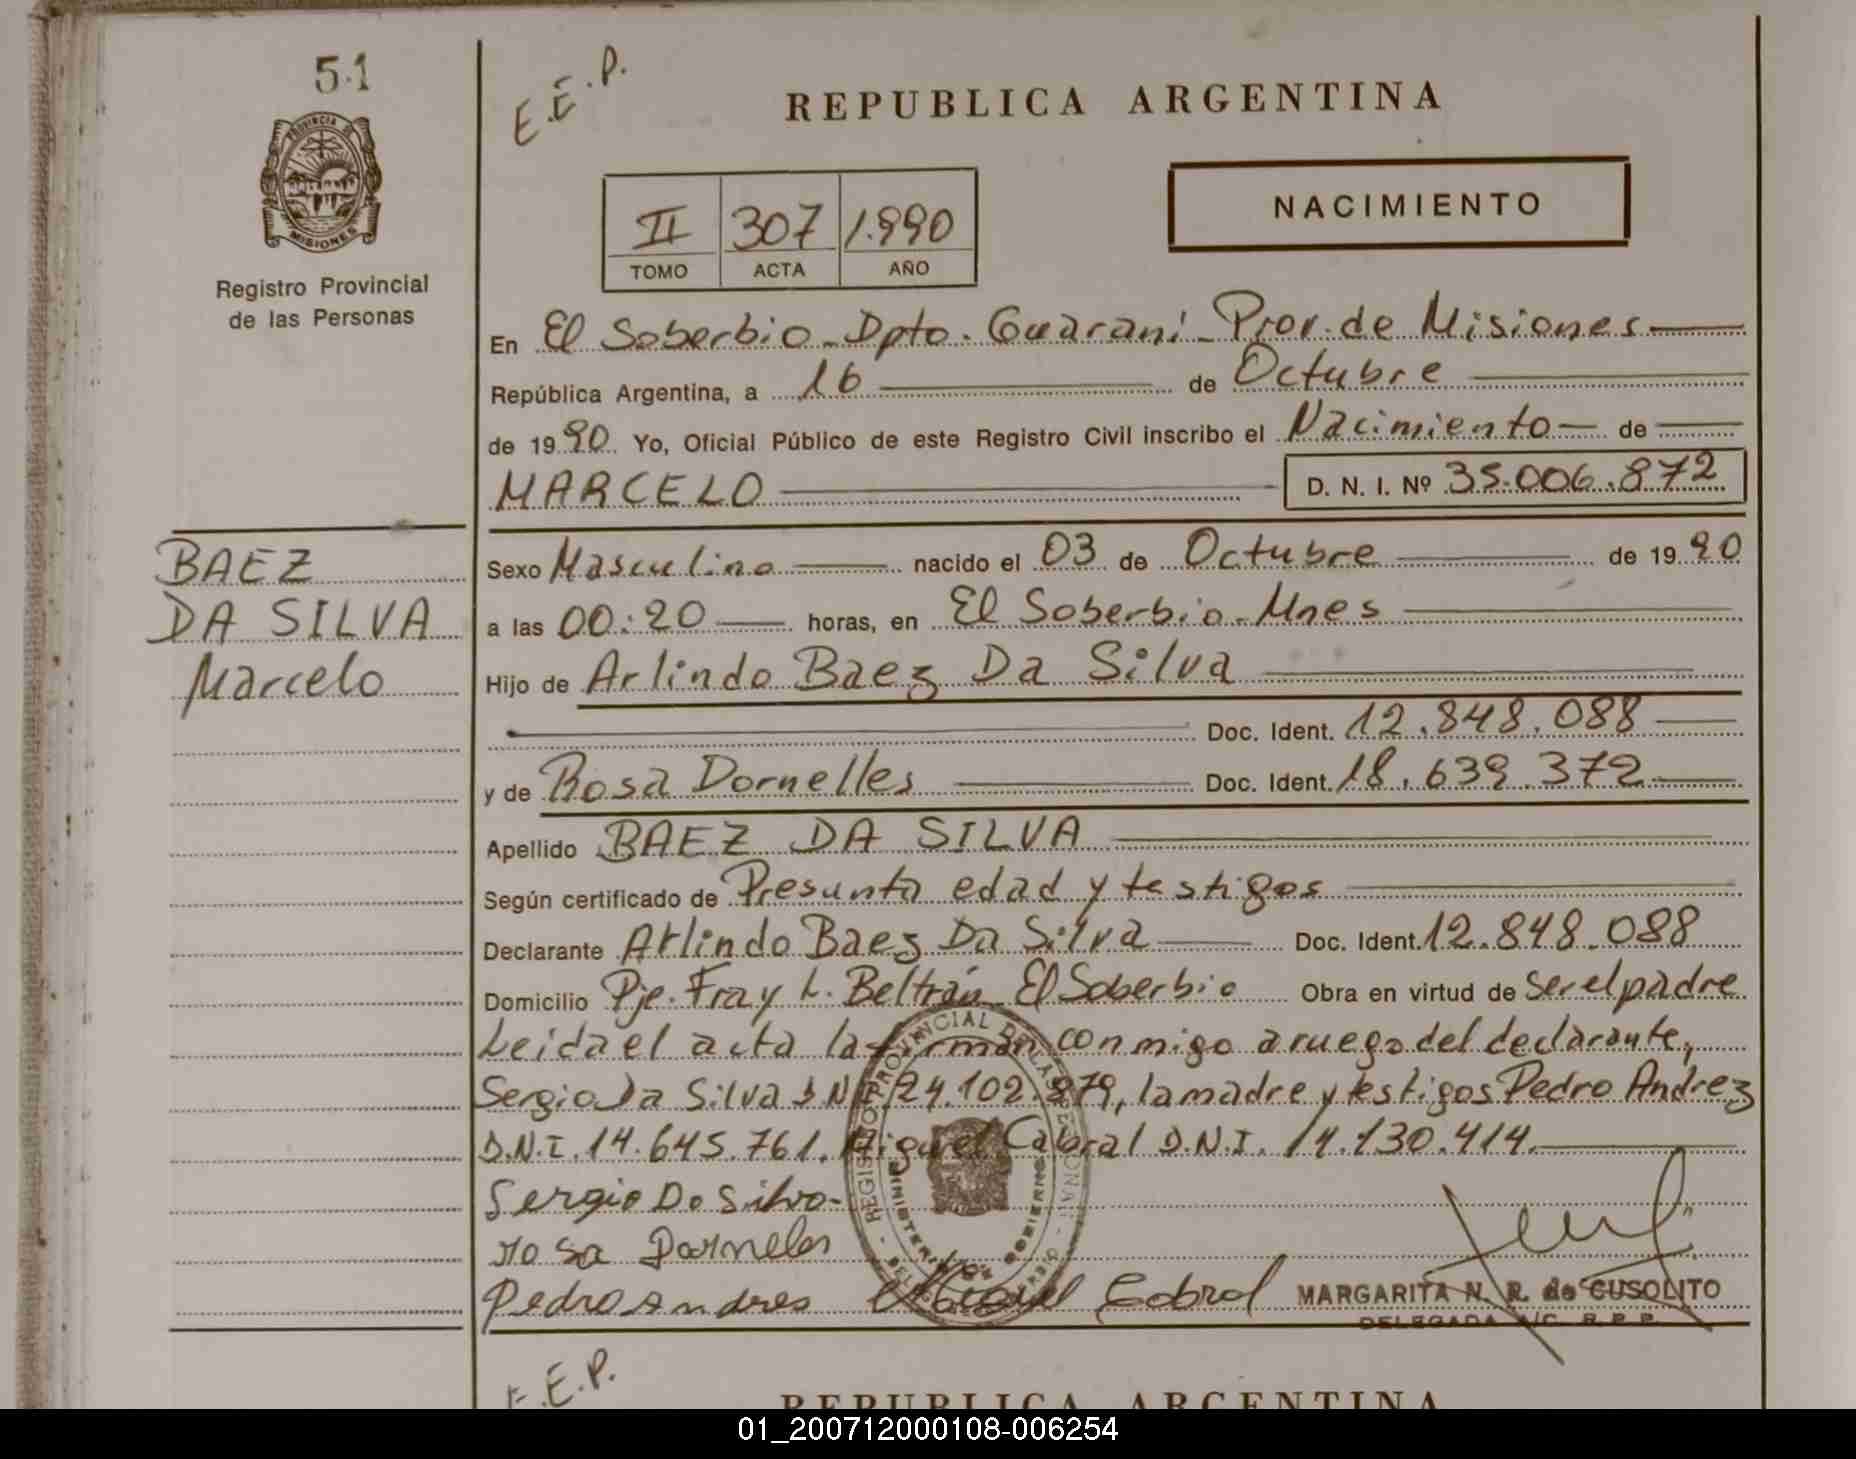 51
E.E.P.
PROVINCIA DE
MISIONES
Registro Provincial
de las Personas
REPUBLICA ARGENTINA
NACIMIENTO
II 307 1.990
TOMO ACTA AÑO
En El Soberbio - Dpto. Guaraní - Prov. de Misiones
República Argentina, a 16 de Octubre
de 1990. Yo, Oficial Público de este Registro Civil inscribo el Nacimiento de
MARCELO D. N. I. Nº 35.006.872
BAEZ
DA SILVA
Marcelo
Sexo Masculino nacido el 03 de Octubre de 1990
a las 00:20 horas, en El Soberbio - Mnes
Hijo de Arlindo Baez Da Silva
Doc. Ident. 12.848.088
y de Rosa Dornelles Doc. Ident. 18.639.372
Apellido BAEZ DA SILVA
Según certificado de Presunta edad y testigos
Declarante Arlindo Baez Da Silva Doc. Ident. 12.848.088
Domicilio Pje. Fray L. Beltrán - El Soberbio Obra en virtud de ser el padre
Leida el acta la firman conmigo a ruego del declarante,
Sergio Da Silva D.N.I. 24.102.879, la madre y testigos Pedro Andrez
D.N.I. 14.645.761. Miguel Cabral D.N.I. 14.130.414.
Sergio Da Silva
rosa Dornelles
Pedro Andres Miguel Cabral
MARGARITA N. R. de CUSOLITO
DELEGADA A/C. R.P.P.
E.E.P.
REPUBLICA ARGENTINA
01_200712000108-006254